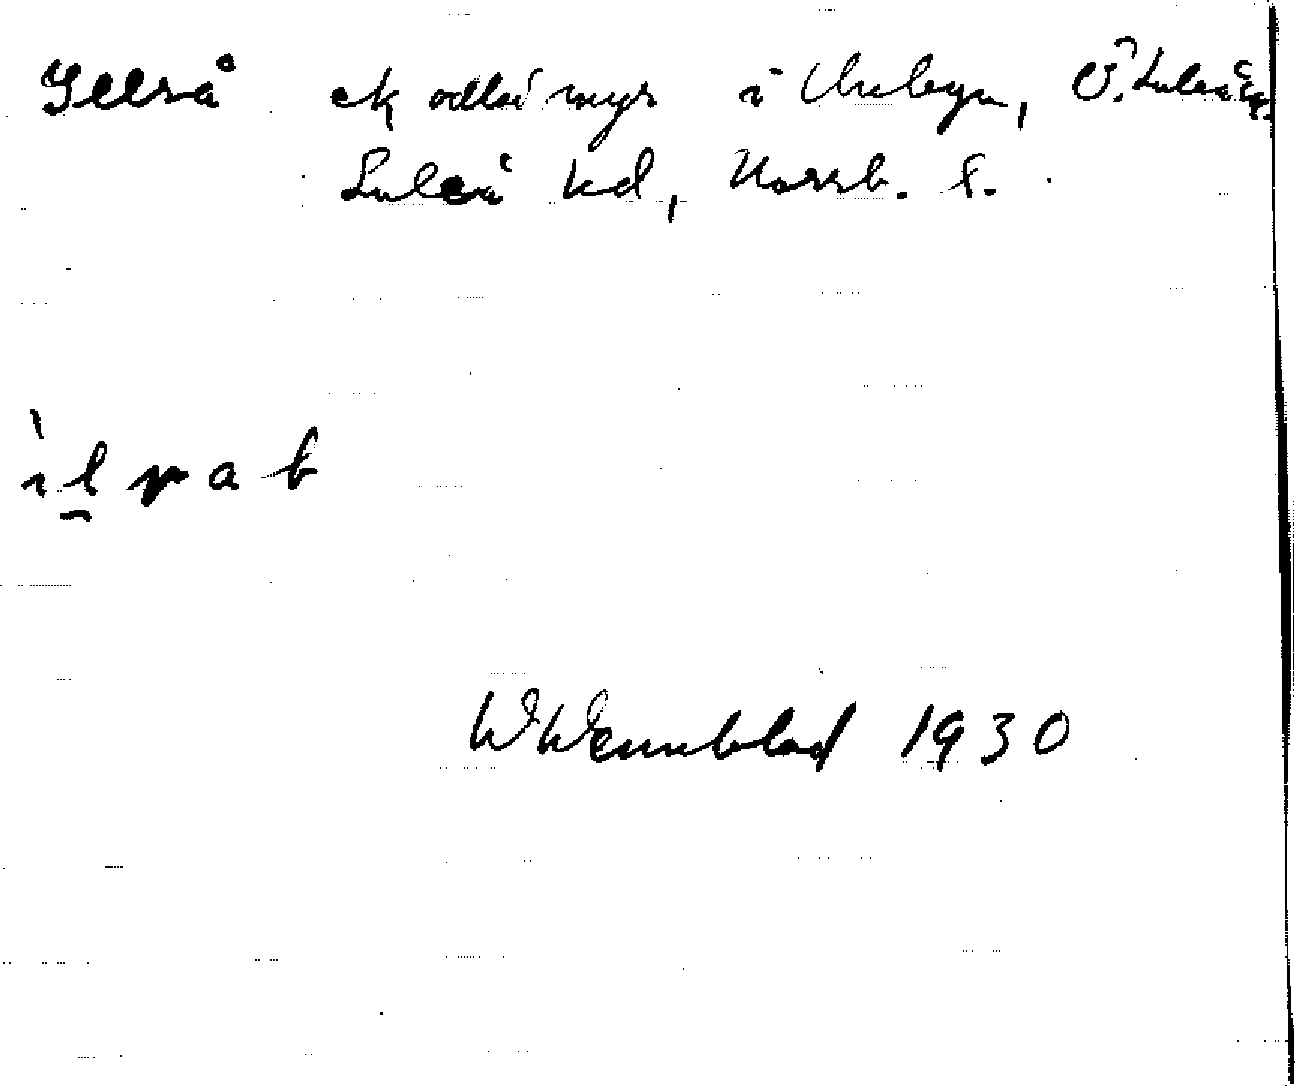 Illså ek odlad myr i Unbyn, Ö. Luleå sn,
Luleå td, Norrb. l.
W Wennblad 1930